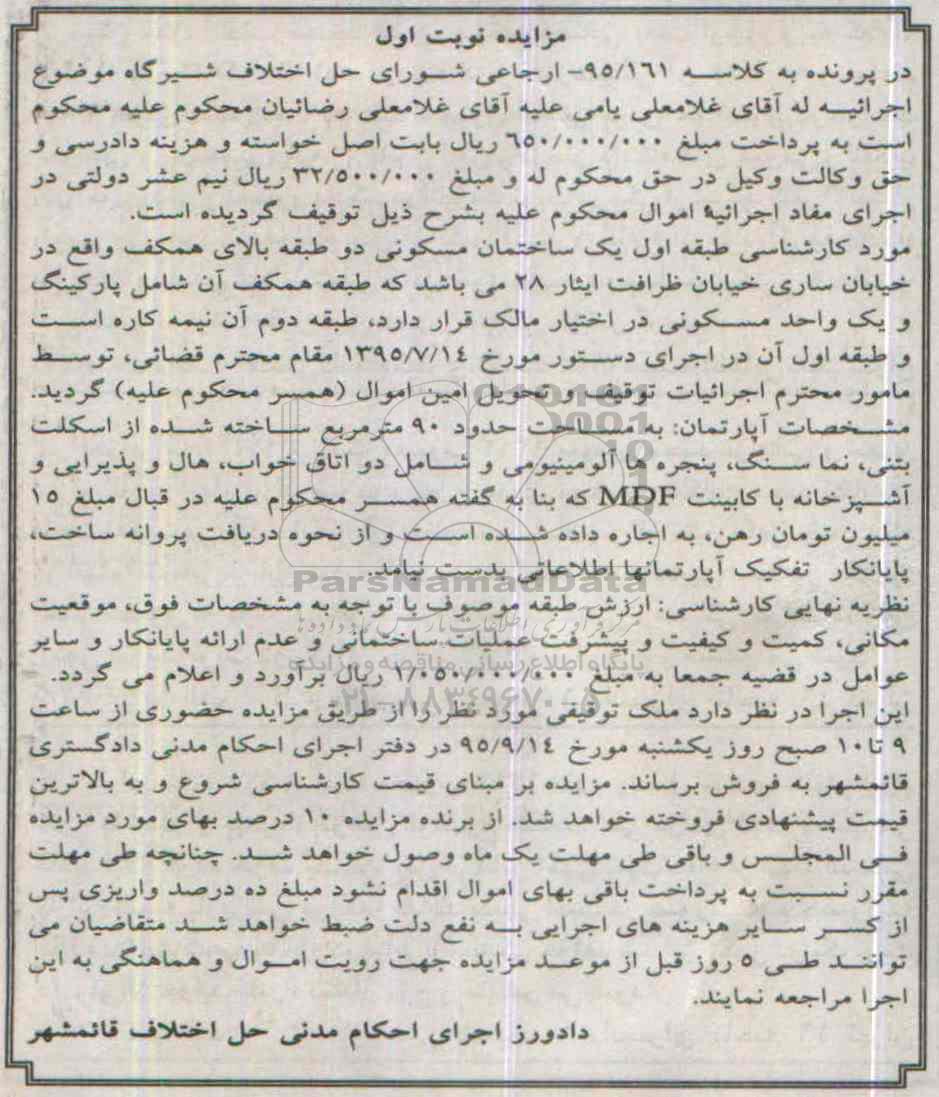 مزایده نوبت اول
در پرونده به کلاسه ۹۵/۱۶۱- ارجاعی شورای حل اختلاف شیرگاه موضوع
اجرائیه له آقای غلامعلی یامی علیه آقای غلامعلی رضائیان محکوم علیه محکوم
است به پرداخت مبلغ ۶۵۰/۰۰۰/۰۰۰ ریال بابت اصل خواسته و هزینه دادرسی و
حق وکالت وکیل در حق محکوم له و مبلغ ۳۲/۵۰۰/۰۰۰ ریال نیم عشر دولتی در
اجرای مفاد اجرائیهٔ اموال محکوم علیه بشرح ذیل توقیف گردیده است.
مورد کارشناسی طبقه اول یک ساختمان مسکونی دو طبقه بالای همکف واقع در
خیابان ساری خیابان ظرافت ایثار ۲۸ می باشد که طبقه همکف آن شامل پارکینگ
و یک واحد مسکونی در اختیار مالک قرار دارد، طبقه دوم آن نیمه کاره است
و طبقه اول آن در اجرای دستور مورخ ۱۳۹۵/۷/۱۴ مقام محترم قضائی، توسط
مامور محترم اجرائیات توقیف و تحویل امین اموال (همسر محکوم علیه) گردید.
مشخصات آپارتمان: به مساحت حدود ۹۰ مترمربع ساخته شده از اسکلت
بتنی، نما سنگ، پنجره ها آلومینیومی و شامل دو اتاق خواب، هال و پذیرایی و
آشپزخانه با کابینت MDF که بنا به گفته همسر محکوم علیه در قبال مبلغ ۱۵
میلیون تومان رهن، به اجاره داده شده است و از نحوه دریافت پروانه ساخت،
پایانکار تفکیک آپارتمانها اطلاعاتی بدست نیامد.
ParsNamadData
نظریه نهایی کارشناسی: ارزش طبقه موصوف با توجه به مشخصات فوق، موقعیت
مکانی، کمیت و کیفیت و پیشرفت عملیات ساختمانی و عدم ارائه پایانکار و سایر
پایگاه اطلاع رسانی مناقصه و مزایده
عوامل در قضیه جمعا به مبلغ ۱/۰۵۰/۰۰۰/۰۰۰ ریال برآورد و اعلام می گردد.
این اجرا در نظر دارد ملک توقیفی مورد نظر را از طریق مزایده حضوری از ساعت
۹ تا۱۰ صبح روز یکشنبه مورخ ۹۵/۹/۱۴ در دفتر اجرای احکام مدنی دادگستری
قائمشهر به فروش برساند. مزایده بر مبنای قیمت کارشناسی شروع و به بالاترین
قیمت پیشنهادی فروخته خواهد شد. از برنده مزایده ۱۰ درصد بهای مورد مزایده
فی المجلس و باقی طی مهلت یک ماه وصول خواهد شد. چنانچه طی مهلت
مقرر نسبت به پرداخت باقی بهای اموال اقدام نشود مبلغ ده درصد واریزی پس
از کسر سایر هزینه های اجرایی به نفع دلت ضبط خواهد شد متقاضیان می
توانند طی ۵ روز قبل از موعد مزایده جهت رویت اموال و هماهنگی به این
اجرا مراجعه نمایند.
دادورز اجرای احکام مدنی حل اختلاف قائمشهر